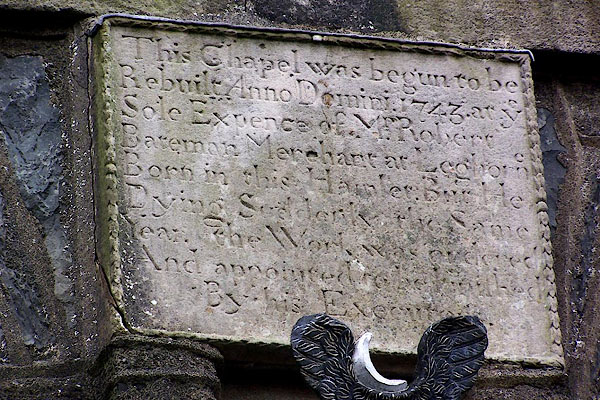 This Chapel was begun to be
Rebuilt Anno Domini 1743. at yͤ
Sole Expence of Mr Robert
Bateman Merchant at Leghorn
Born in this Hamlet. But He
Dying Suddenly the Same
Year. The Work was ordered
And appointed to be finished
By his Execut